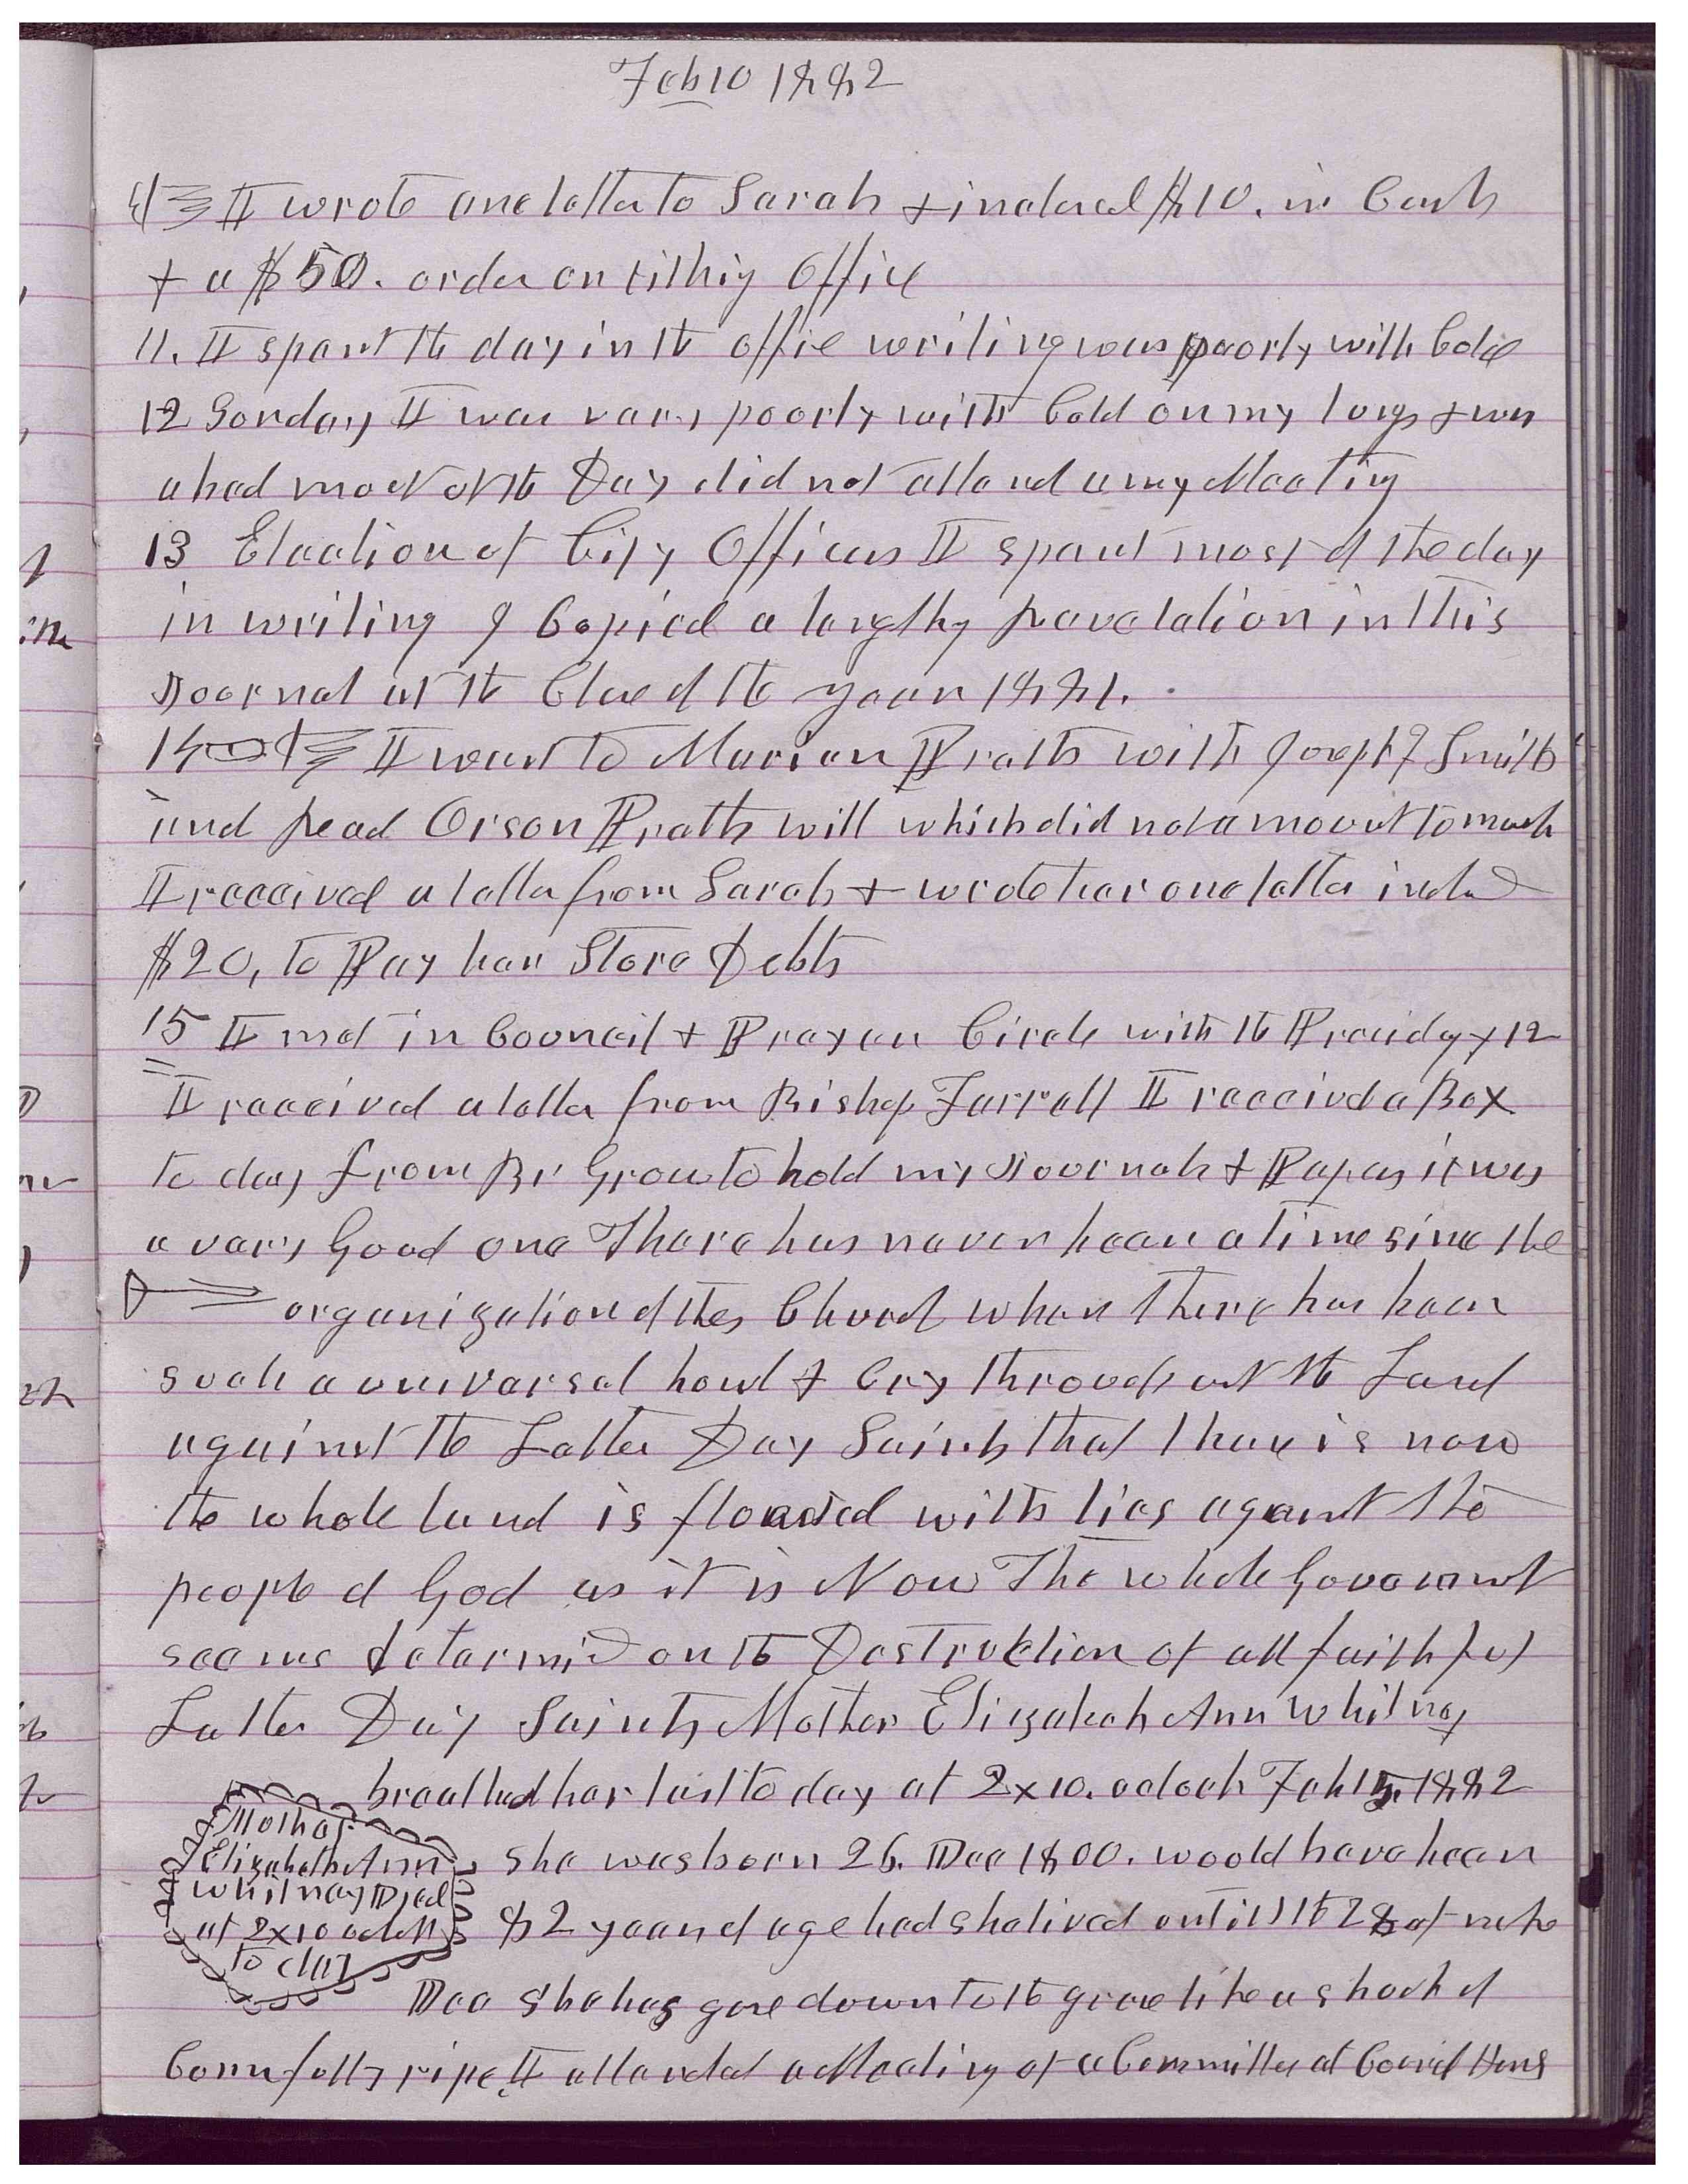 Feb 10 1882
I wrote one letter to Sarah & inclosed $10. in Cash
& a $50. order on tithing Office
11. I spent the day in the office writing was poorly with Cold
12 Sonday I was vary poorly with Cold on my lungs & was
abed most of the Day did not attend any Meeting
13 Election of City Officers I spent most of the day
in writing I Copied a lengthy revelation in this
Journal at the Close of the year 1881.
14 I went to Marian Pratts with Joseph F Smith
and read Orson Pratts will which did not amount to much
I received a letter from Sarah & wrote her one letter inclosed
$20, to Pay her Store Debts
15 I met in Council & Prayer Circle with the Presidcy & 12
I received a letter from Bishop Farrell I received a Box
to day from Br Grow to hold my Journals & Papers it was
a vary Good one There has never been a time since the
organization of the Church when there has been
such a universal howl & Cry throughout the Land
against the Latter Day Saints that there is now
the whole land is flooded with lies against the
people of God as it is Now The whole Government
seems determined on the Destruction of all faithful
Latter Day Saints Mother Elizabeh Ann Whitney
breathed her last to day at 2x10. oclock Feb 15. 1882
Mother
Elizabeth Ann
Whitney Died
at 2x10 oclok
to day
She was born 26. Dec 1800. would have been
82 years of age had she lived untill the 28 of next
Dec She has gone down to the grave like a shock of
Corn fully ripe. I attended a Meeting of a Committee at Council House